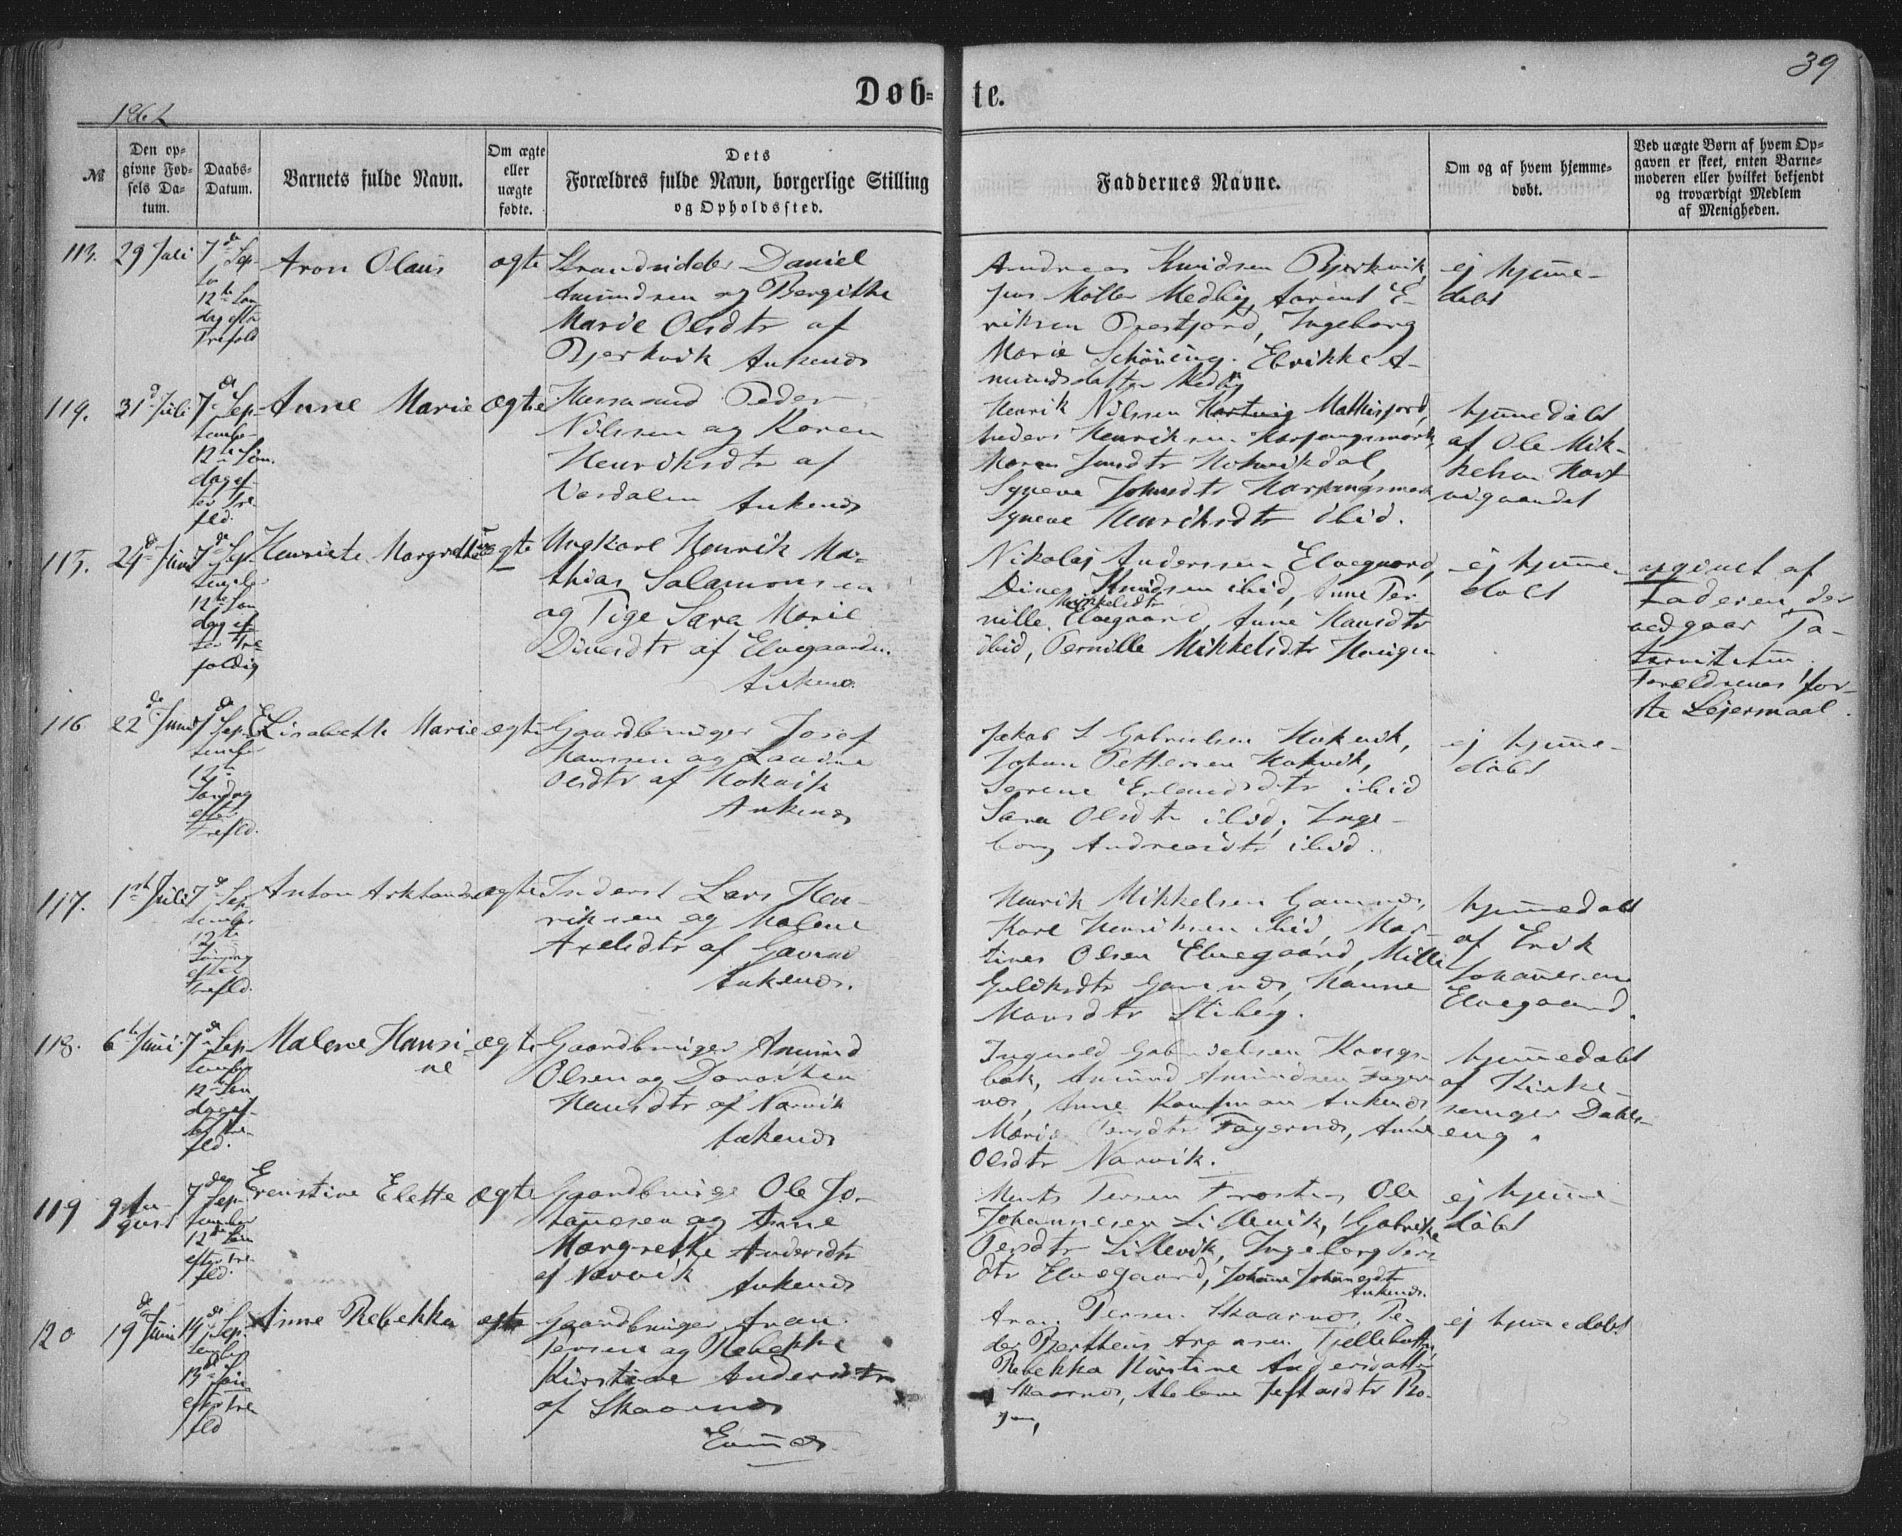 39
Døb-
te.
1862
№
Den op-
givne Fød-
sels Da-
tum.
Daabs-
Datum.
Barnets fulde Navn.
Om ægte
eller
uægte
fødte.
Dets
Forældres fulde Navn, borgerlige Stilling
og Opholdssted.
Faddernes Navne.
Om og af hvem hjemme-
døbt.
Ved uægte Børn af hvem Op-
gaven er skeet, enten Barne-
moderen eller hvilket bekjendt
og troværdigt Medlem
af Menigheden.
113.
29 Juli
7de Sep-
12te Søn
dag efter
Trefold
Aron Olaus
ægte
Strandsidder Daniel
Amundsen og Bergitthe
Marie Olsdtr af
Bjerkvik Ankenes
Andreas Knudsen Bjerkvik,
Møller Medby, Arent E-
riksen Prestjord, Ingeborg
Marie Schöning. Elrikke A-
mundsdatter Medby
ej hjemme-
døbt
114.
31 Juli
7de Sep-
tember
12te Søn.
dag ef-
ter Tre
fld.
Anne Marie
ægte
Huusmand Peder
Nilssen og Karen
Henriksdtr af
Vasdalen Ankenes
Henrik Nilssen Mathisjord,
Peders Henriksen Harjangsmark,
Maren Jensdtr Kobbvikdal,
Syneve Johnsdtr Harjangsmark
Syneve Henriksdtr ibid.
hjemmedøbt
af Ole Mik-
kelsen Hart
vigvandet
115.
29de Juni
7de Sep-
tember
12te Søn
dag ef
ter Tre
foldig
Henriete Margrethe
uægte
Ungkarl Henrik Ma-
thias Salamonsen
og Pige Sara Marie
Dinesdtr af Elvegaarden.
Ankenes
Nikolaj Anderssen Elvegaard,
Dines Knudsen ibid, Anne Per
Mikkelsdtr
nille Elvegaard, Anne Hansdtr
ibid, Pernille Mikkelsdtr Haugen
ej hjemme-
døbt
opgivet af
Faderen, der
vedgaar Pa-
ternitetem.
Forældrenes 1 for-
ste Lejermaal.
116
22de Juni
7de Sep-
tember
12te
Søndag
efter
Trefld.
Elisabeth Marie
ægte
Gaardbruger Josef
Hanssen og
Olsdtr af Hokvik
Ankenes
Jakob Gabrielsen Hokvik,
Johan Pettersen Hokvik,
Serene Erlandsdtr ibid
Sara Olsdtr ibid, Inge-
borg Andreasdtr ibid.
ej hjemme-
døbt
117.
1ste Juli
7de Sep
tember
12te
Søndag
efter
Trefld.
Anton
ægte
Inderst Lars Hen-
riksen og Malene
Axelsdtr af Gamnes
Ankenes.
Henrik Mikkelsen Gamnes,
Karl Henriksen ibid, Mar-
tines Olsen Elvegaard,
Gamnes, Hanne
Hansdtr Stiberg.
hjemmedøbt
af Erik
Johannesen
Elvegaard.
118.
6te Juni
7de Sep-
tember
12te Søn
dag ef-
ter Tre-
fld.
Malene Hansi-
ne
ægte
Gaardbruger Amund
Olsen og Dorothea
Hansdtr af Narvik
Ankenes
Ingvald Gabrielsen Kongs-
bak, Amund Amundsen Fager
nes, Anne Kaufman Ankenes,
Marie Persdtr Fagernes, Anne
Olsdtr Narvik.
hjemmedøbt
af Kirke-
sanger Dahls-
eng.
119
9 Au-
gust
7de Sep-
tember
12te Søn
efter Tre
fld.
Erenstine Elette
ægte
Gaardbruger Ole Jo-
hannesen og Anne
Margrethe Andersdtr
af Narvik Ankenes
Ments Persen Ole
Johannesen Lillevik, Gabrikke
Persdtr Lillevik, Ingeborg Pers
dtr Elvegaard, Johanna Johannesdtr
Ankenes.
ej hjemme-
døbt
120
19de Juni
14de Sep-
tember
13de Søn
efter Tre
fld
Anne Rebekka
ægte
Gaardbruger Aron
Persen og Rebekka
Kirstine Andersdtr
af Skaarnes
Evenes
Aron Persen Skaarnes, Pe-
der Bertheus Aronsen
Rebekka Kirstine Andersdatter
Skaarnes, Bo-
gen,
ej hjemmedøbt